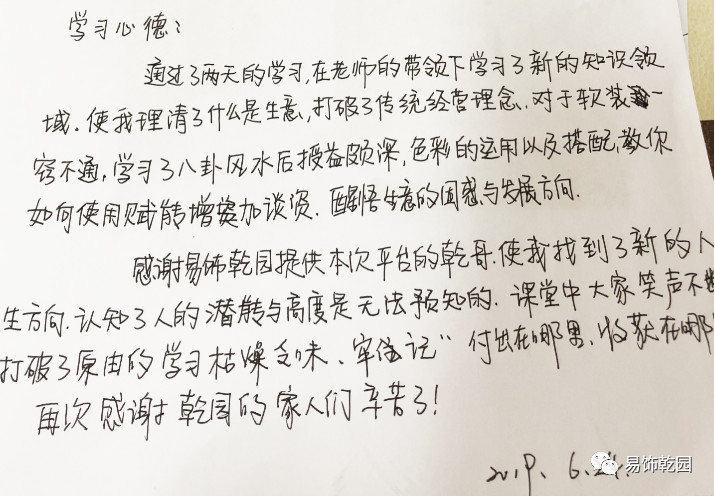 学习心德：
通过了两天的学习,在老师的带领下学习了新的知识领
域.使我理清了什么是生意,打破了传统经营理念.对于软装一
窍不通,学习了八卦风水后授益颇深,色彩的运用以及搭配,教你
如何使用赋能增加谈资.醒悟生意的困惑与发展方向.
感谢易饰乾园提供本次平台的乾哥.使我找到了新的人
生方向.认知了人的潜能与高度是无法预知的.课堂中大家笑声不断
打破了原由的学习枯燥乏味、牢住记“付出在哪里、收获在哪
再次感谢乾园的家人们辛苦了!
2019. 6.
易饰乾园